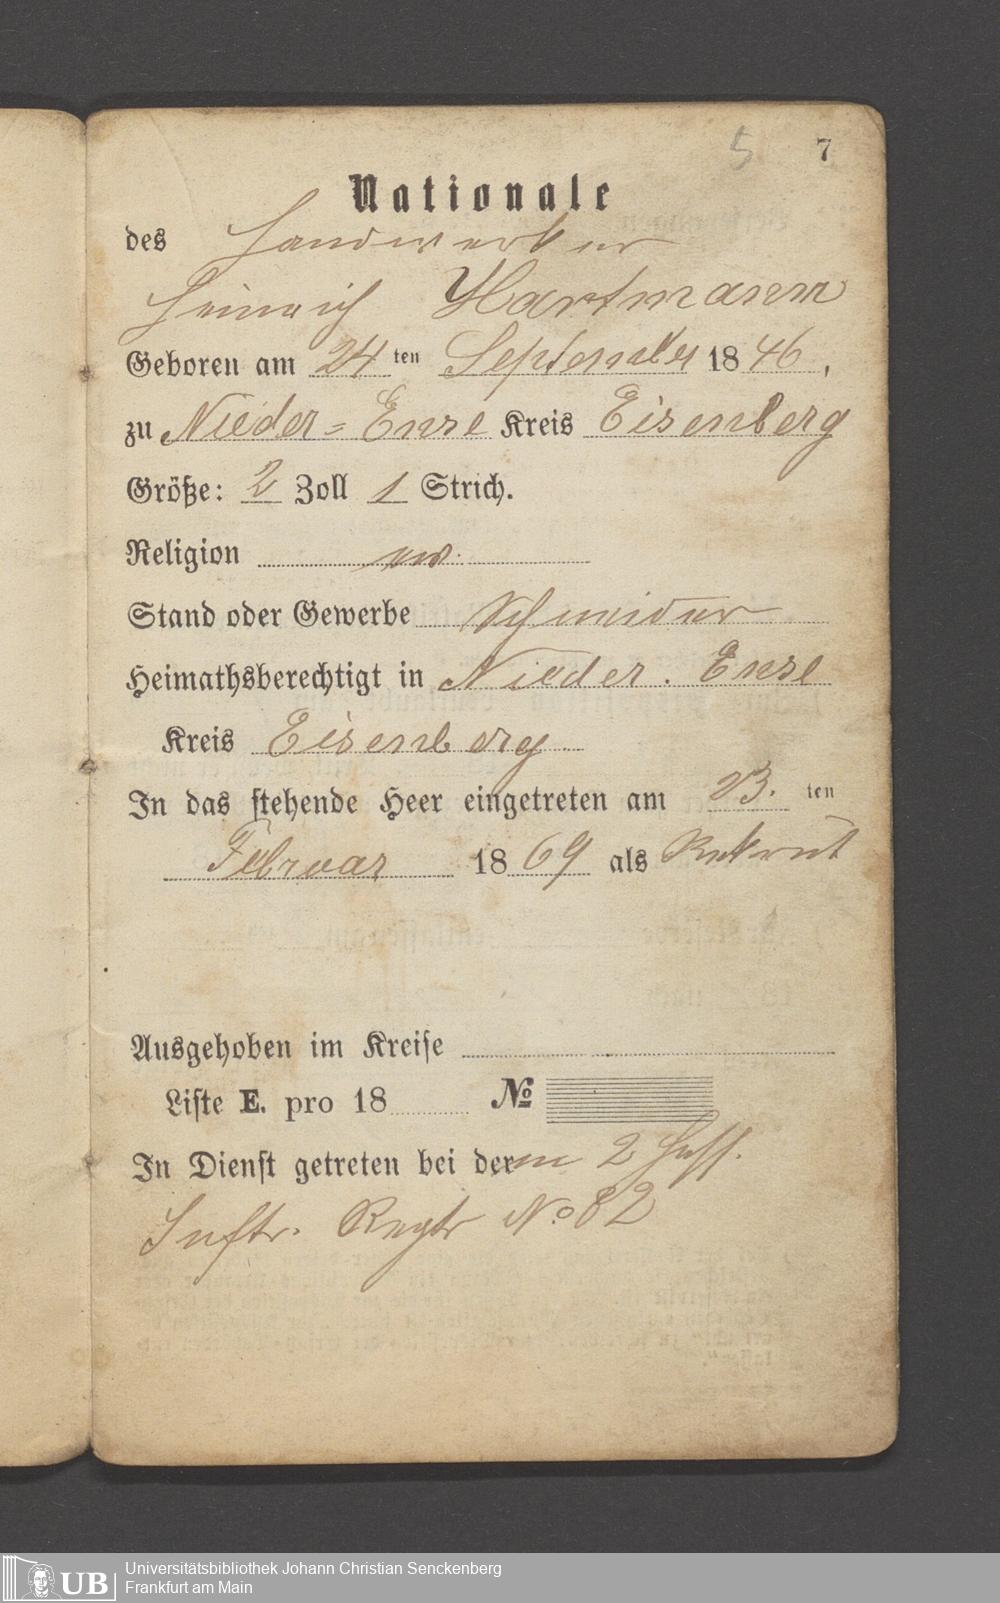 5 7
Nationale
des Handwerker
Heinrich Hartmann
Geboren am 24 ten September 1846,
zu Nieder-Ense Kreis Eisenberg
Größe: 2 Zoll 1 Strich.
Religion ev.
Stand oder Gewerbe Schneider
Heimathsberechtigt in Nieder. Ense
Kreis Eisenberg
In das stehende Heer eingetreten am 23. ten
Februar 1869 als Rekrut
Ausgehoben im Kreise
Liste E. pro 18 No
In Dienst getreten bei dem 2 Hess.
Inftr. Regtr No 82
UB Universitätsbibliothek Johann Christian Senckenberg
Frankfurt am Main